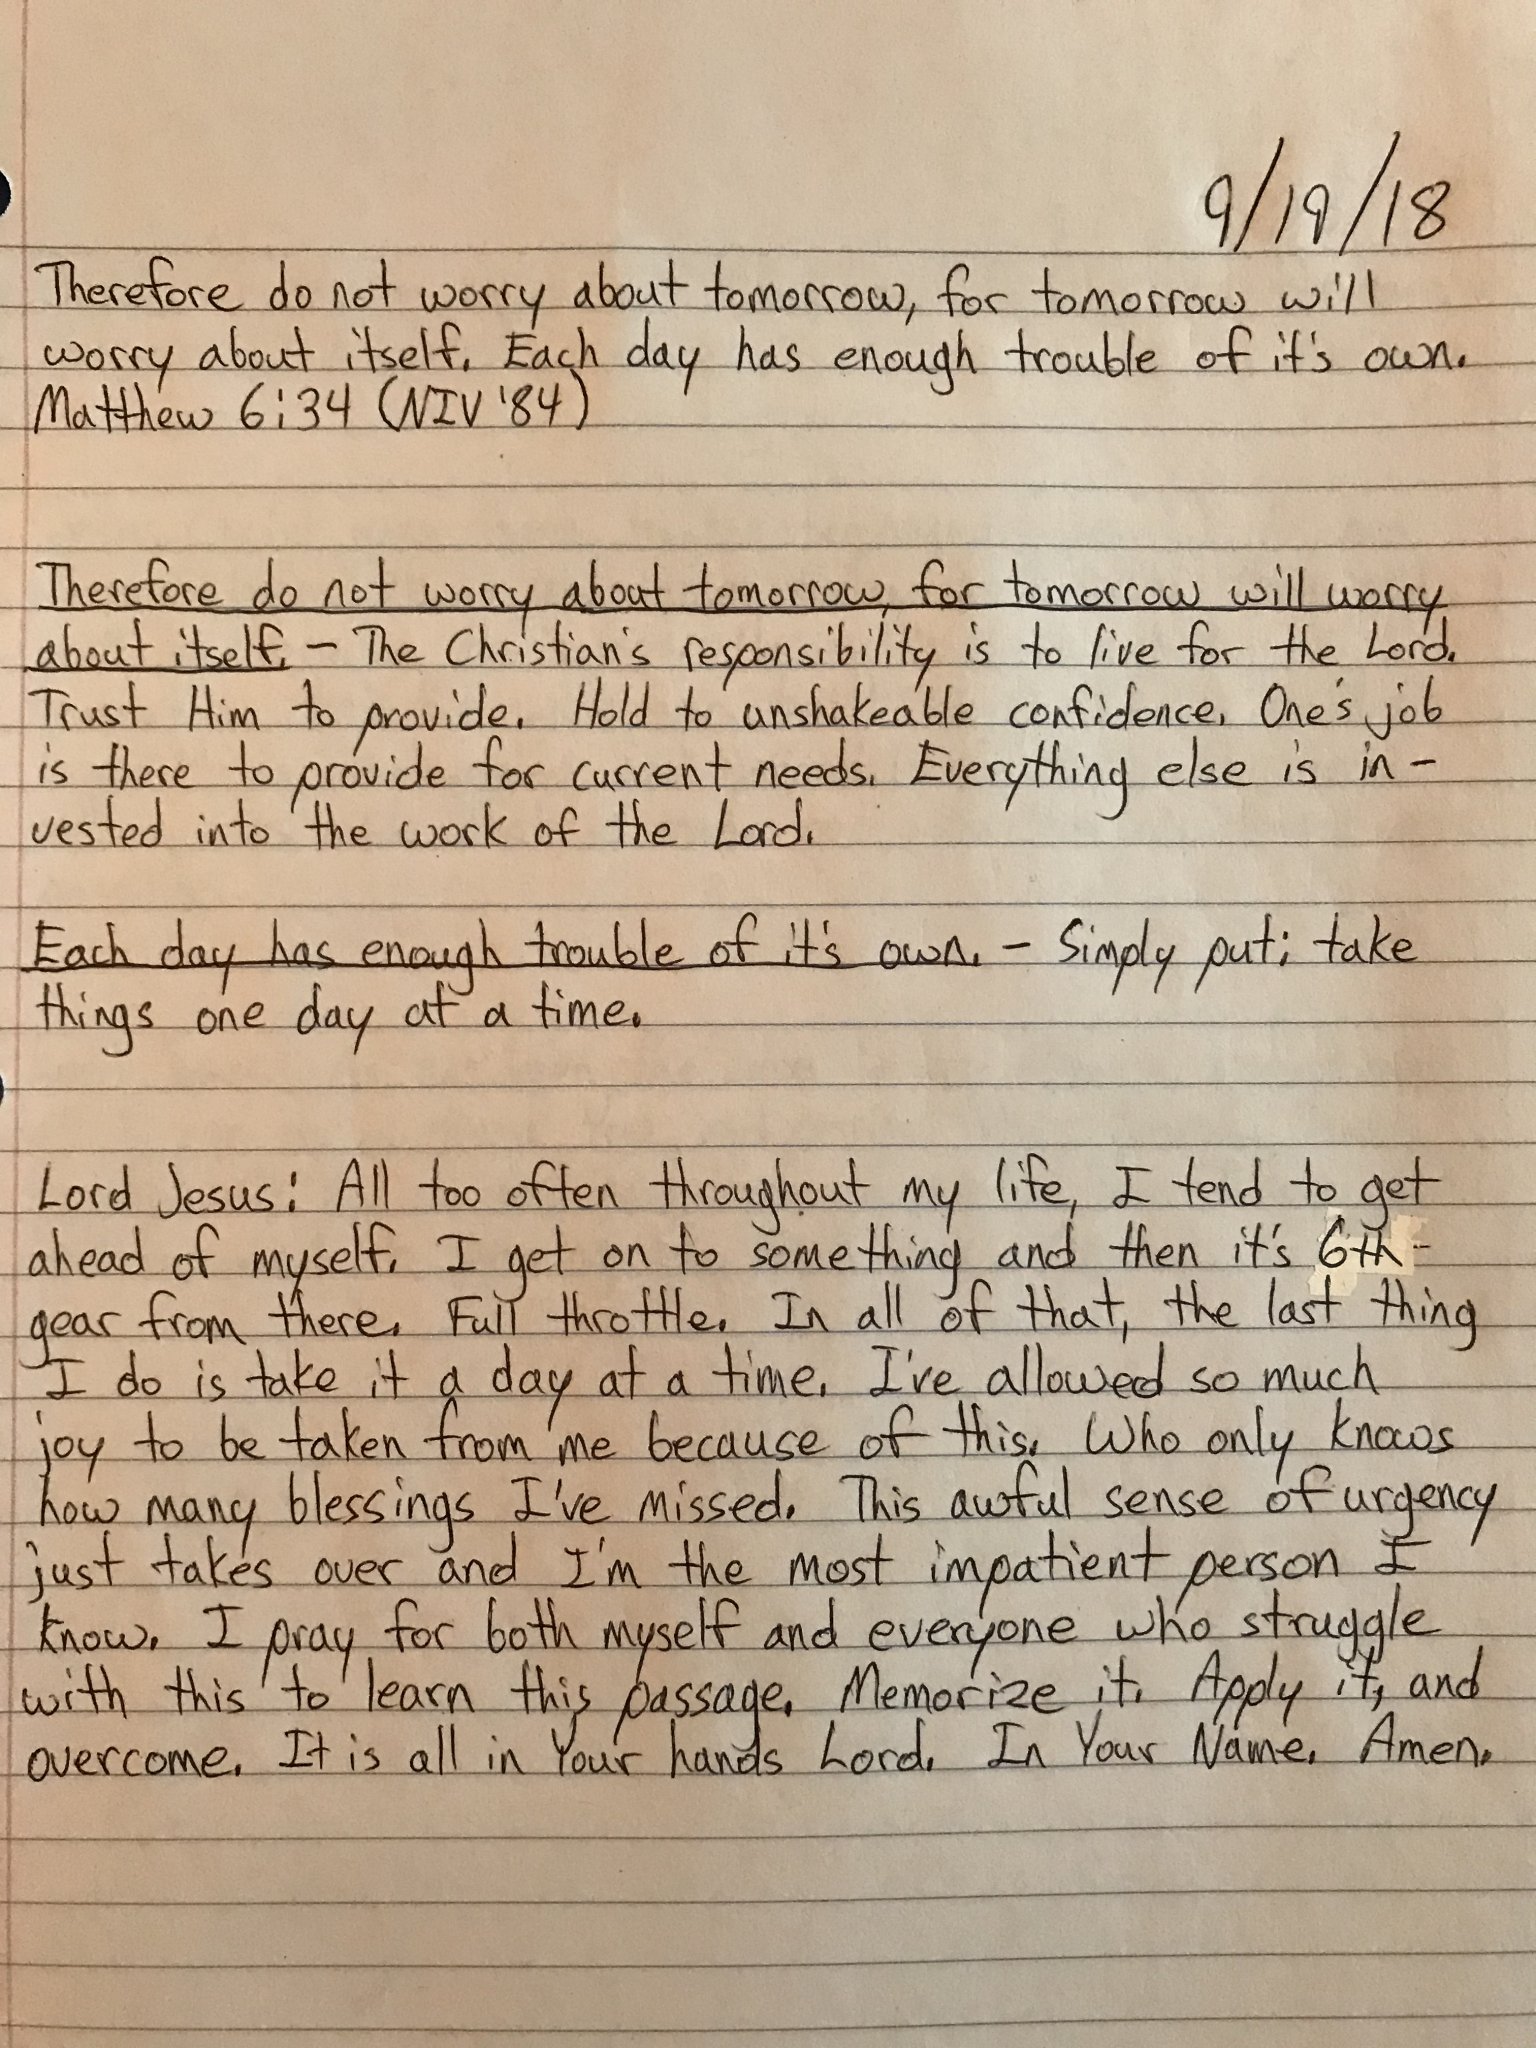 9/19/18
Therefore do not worry about tomorrow, for tomorrow will
worry about itself. Each day has enough trouble of it's own.
Matthew 6:34 (NIV '84)
Therefore do not worry about tomorrow, for tomorrow will worry
about itself. - The Christian's responsibility is to live for the Lord.
Trust Him to provide. Hold to unshakeable confidence. One's job
is there to provide for current needs. Everything else is in-
vested into the work of the Lord.
Each day has enough trouble of it's own. - Simply put; take
things one day at a time.
Lord Jesus: All too often throughout my life, I tend to get
ahead of myself. I get on to something and then it's 6th-
gear from there. Full throttle. In all of that, the last thing
I do is take it a day at a time. I've allowed so much
joy to be taken from me because of this. Who only knows
how many blessings I've missed. This awful sense of urgency
just takes over and I'm the most impatient person I
know. I pray for both myself and everyone who struggle
with this to learn this passage. Memorize it. Apply it, and
overcome. It is all in Your hands Lord. In Your Name. Amen.